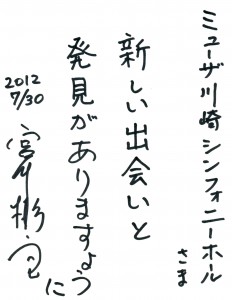 ミューザ川崎シンフォニーホール
さま
新しい出会いと
発見がありますように
2012
7/30
宮川彬良